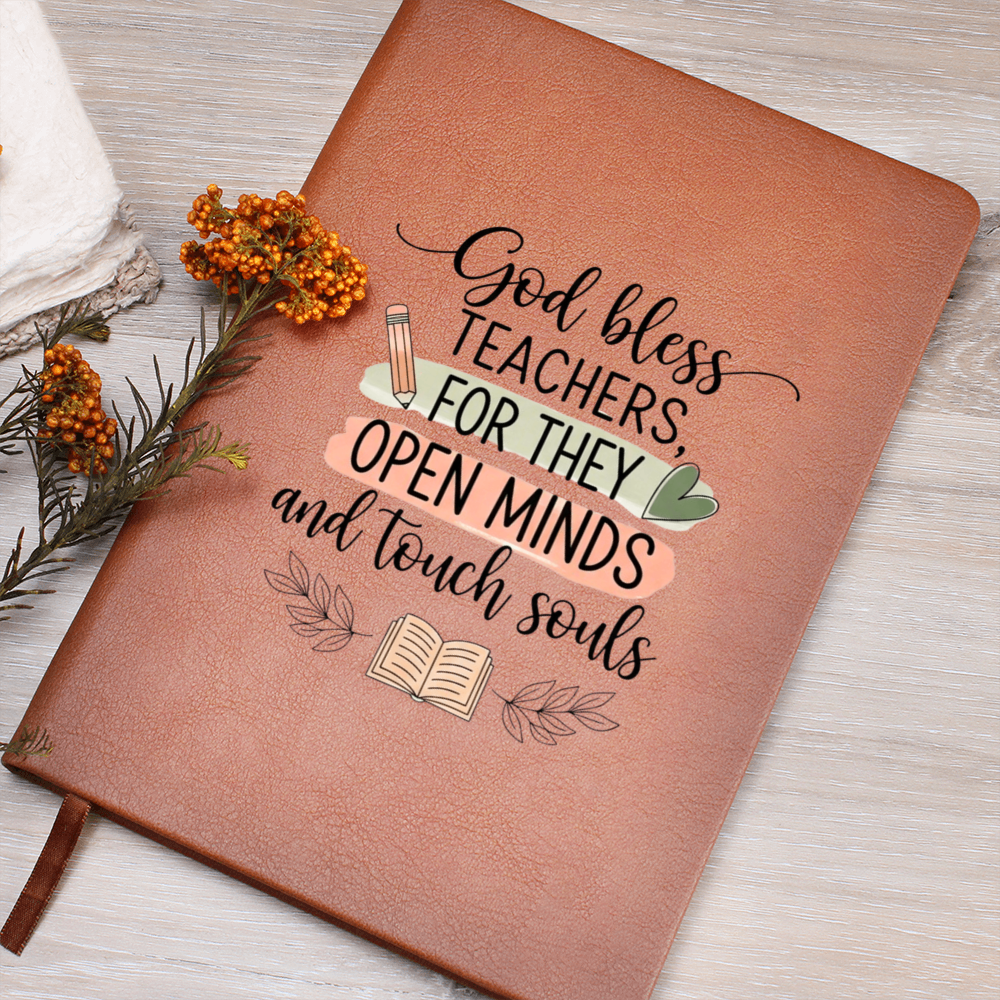 God bless
TEACHERS,
FOR THEY
OPEN MINDS
and touch souls